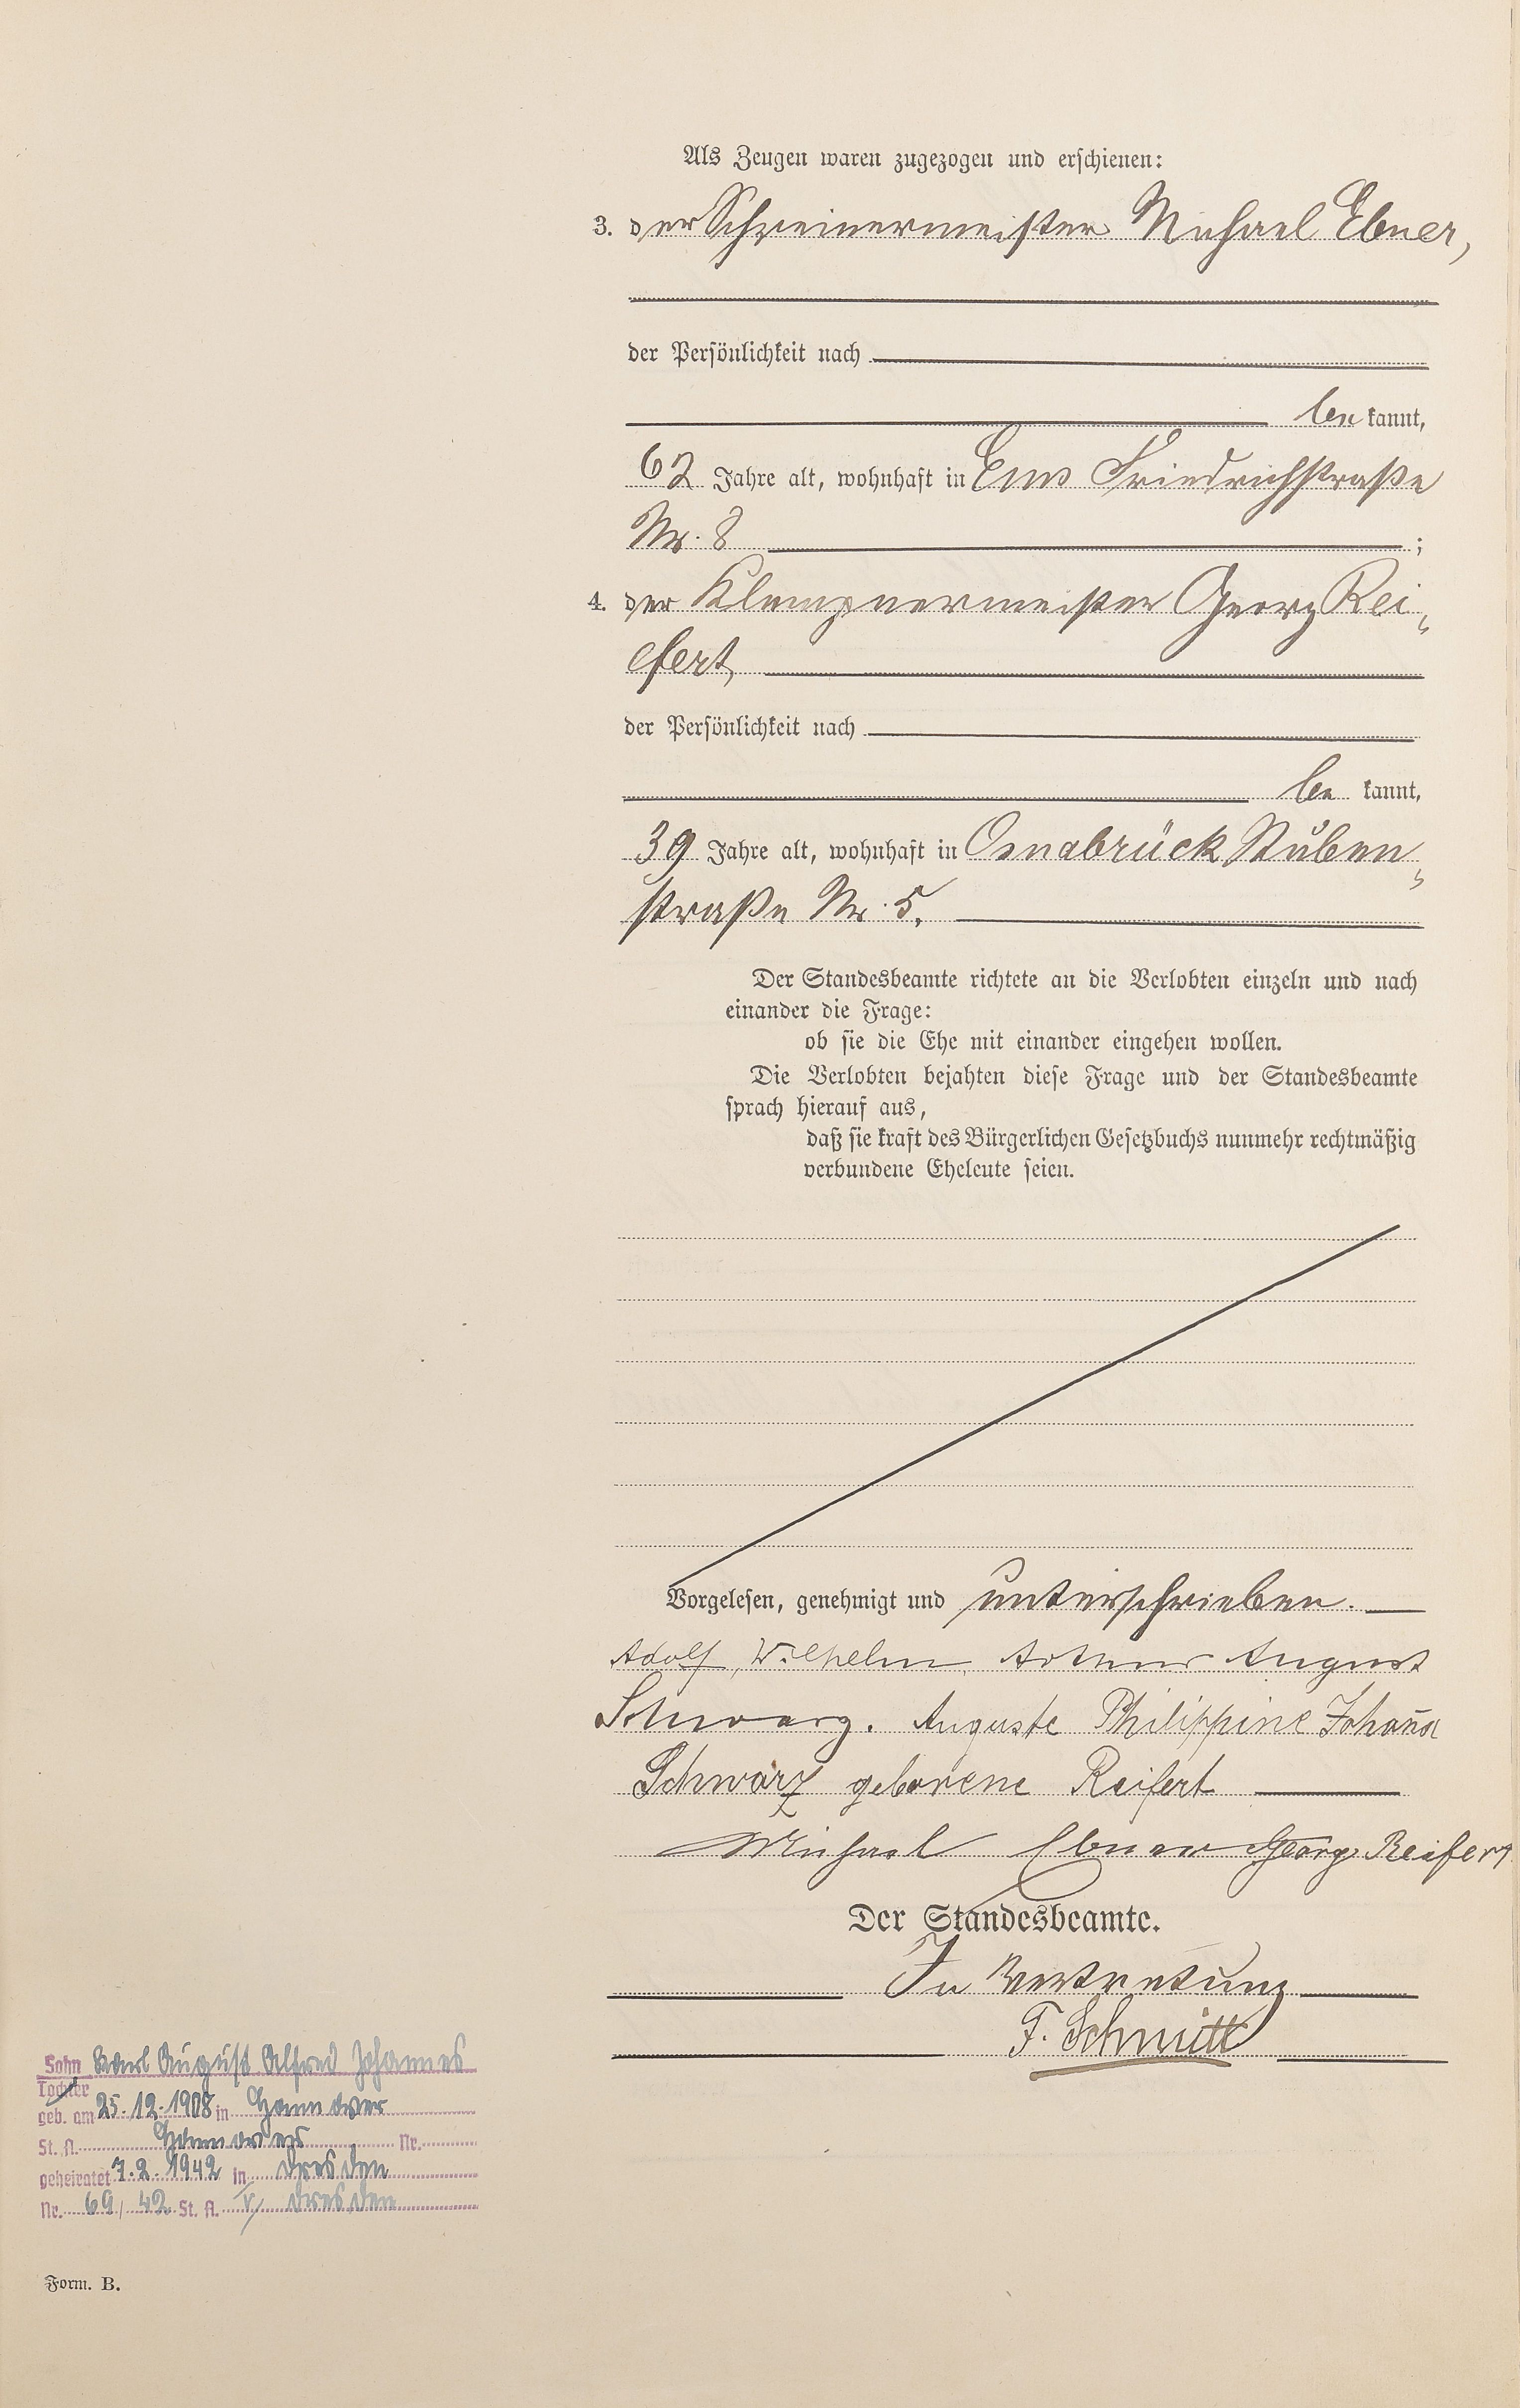 Als Zeugen waren zugezogen und erschienen:
3. der Schreinermeister Michael Ebner,
der Persönlichkeit nach
be kannt,
62 Jahre alt, wohnhaft in Ems Friedrichstraße
Nr. 8 ;
4. der Klempnermeister Georg Rei-
fert,
der Persönlichkeit nach
be kannt,
39 Jahre alt, wohnhaft in Osnabrück Stüben-
straße Nr. 5.
Der Standesbeamte richtete an die Verlobten einzeln und nach
einander die Frage:
ob sie die Ehe mit einander eingehen wollen.
Die Verlobten bejahten diese Frage und der Standesbeamte
sprach hierauf aus,
daß sie kraft des Bürgerlichen Gesetzbuchs nunmehr rechtmäßig
verbundene Eheleute seien.
Vorgelesen, genehmigt und unterschrieben.
Adolf, Wilhelm, Arthur August
Schwarz. Auguste Philippine Johan̄a
Schwarz geborene Reifert
Michael Ebner Georg Reifert
Der Standesbeamte.
In Vertretung
F. Schmitt
Sohn Karl August Alfred Johannes
Tochter
geb. am 25.12.1908 in Hannover
St. A. Hannover Nr.
geheiratet 7.2.1942 in Dresden
Nr. 69/42 St. A. V, Dresden
Form. B.